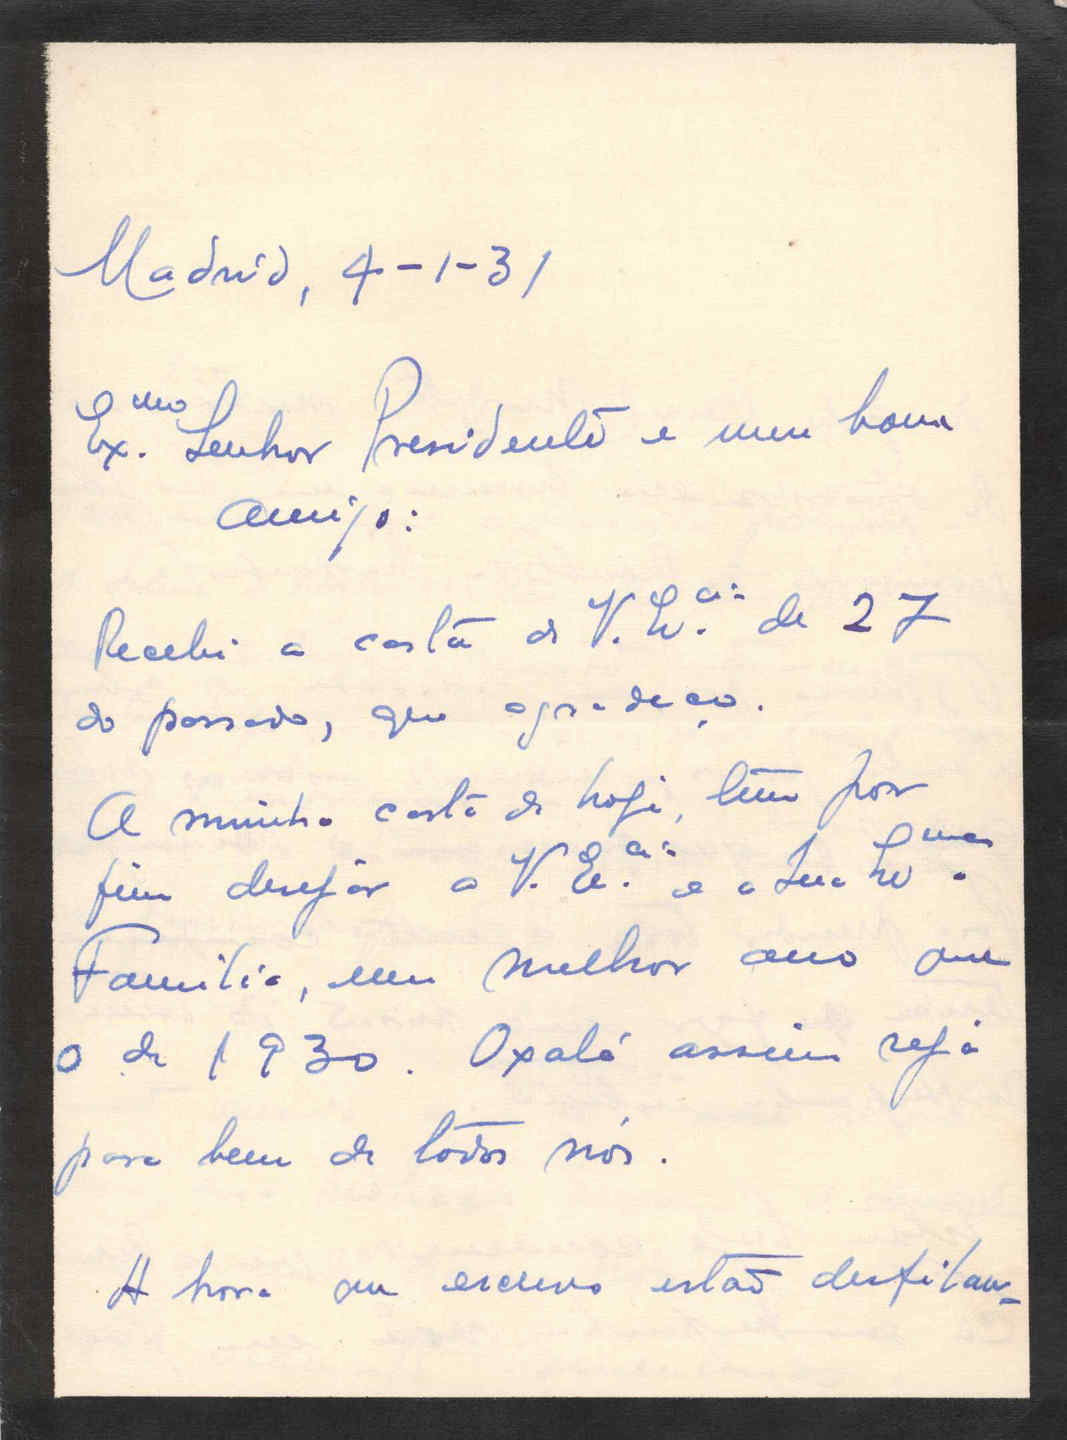 Madrid, 4-1-31
Ex.mo Senhor Presidente e meu bom
amigo:
Recebi a carta de V. Ex.cia de 27
do passado, que agradeço.
A minha carta de hoje, tem por
fim desejar a V. Ex.cia e a Sua Ex.ma
Familia, um melhor ano que
o de 1930. Oxalá assim seja
para bem de todos nós.
A hora que escrevo estão desfilan-